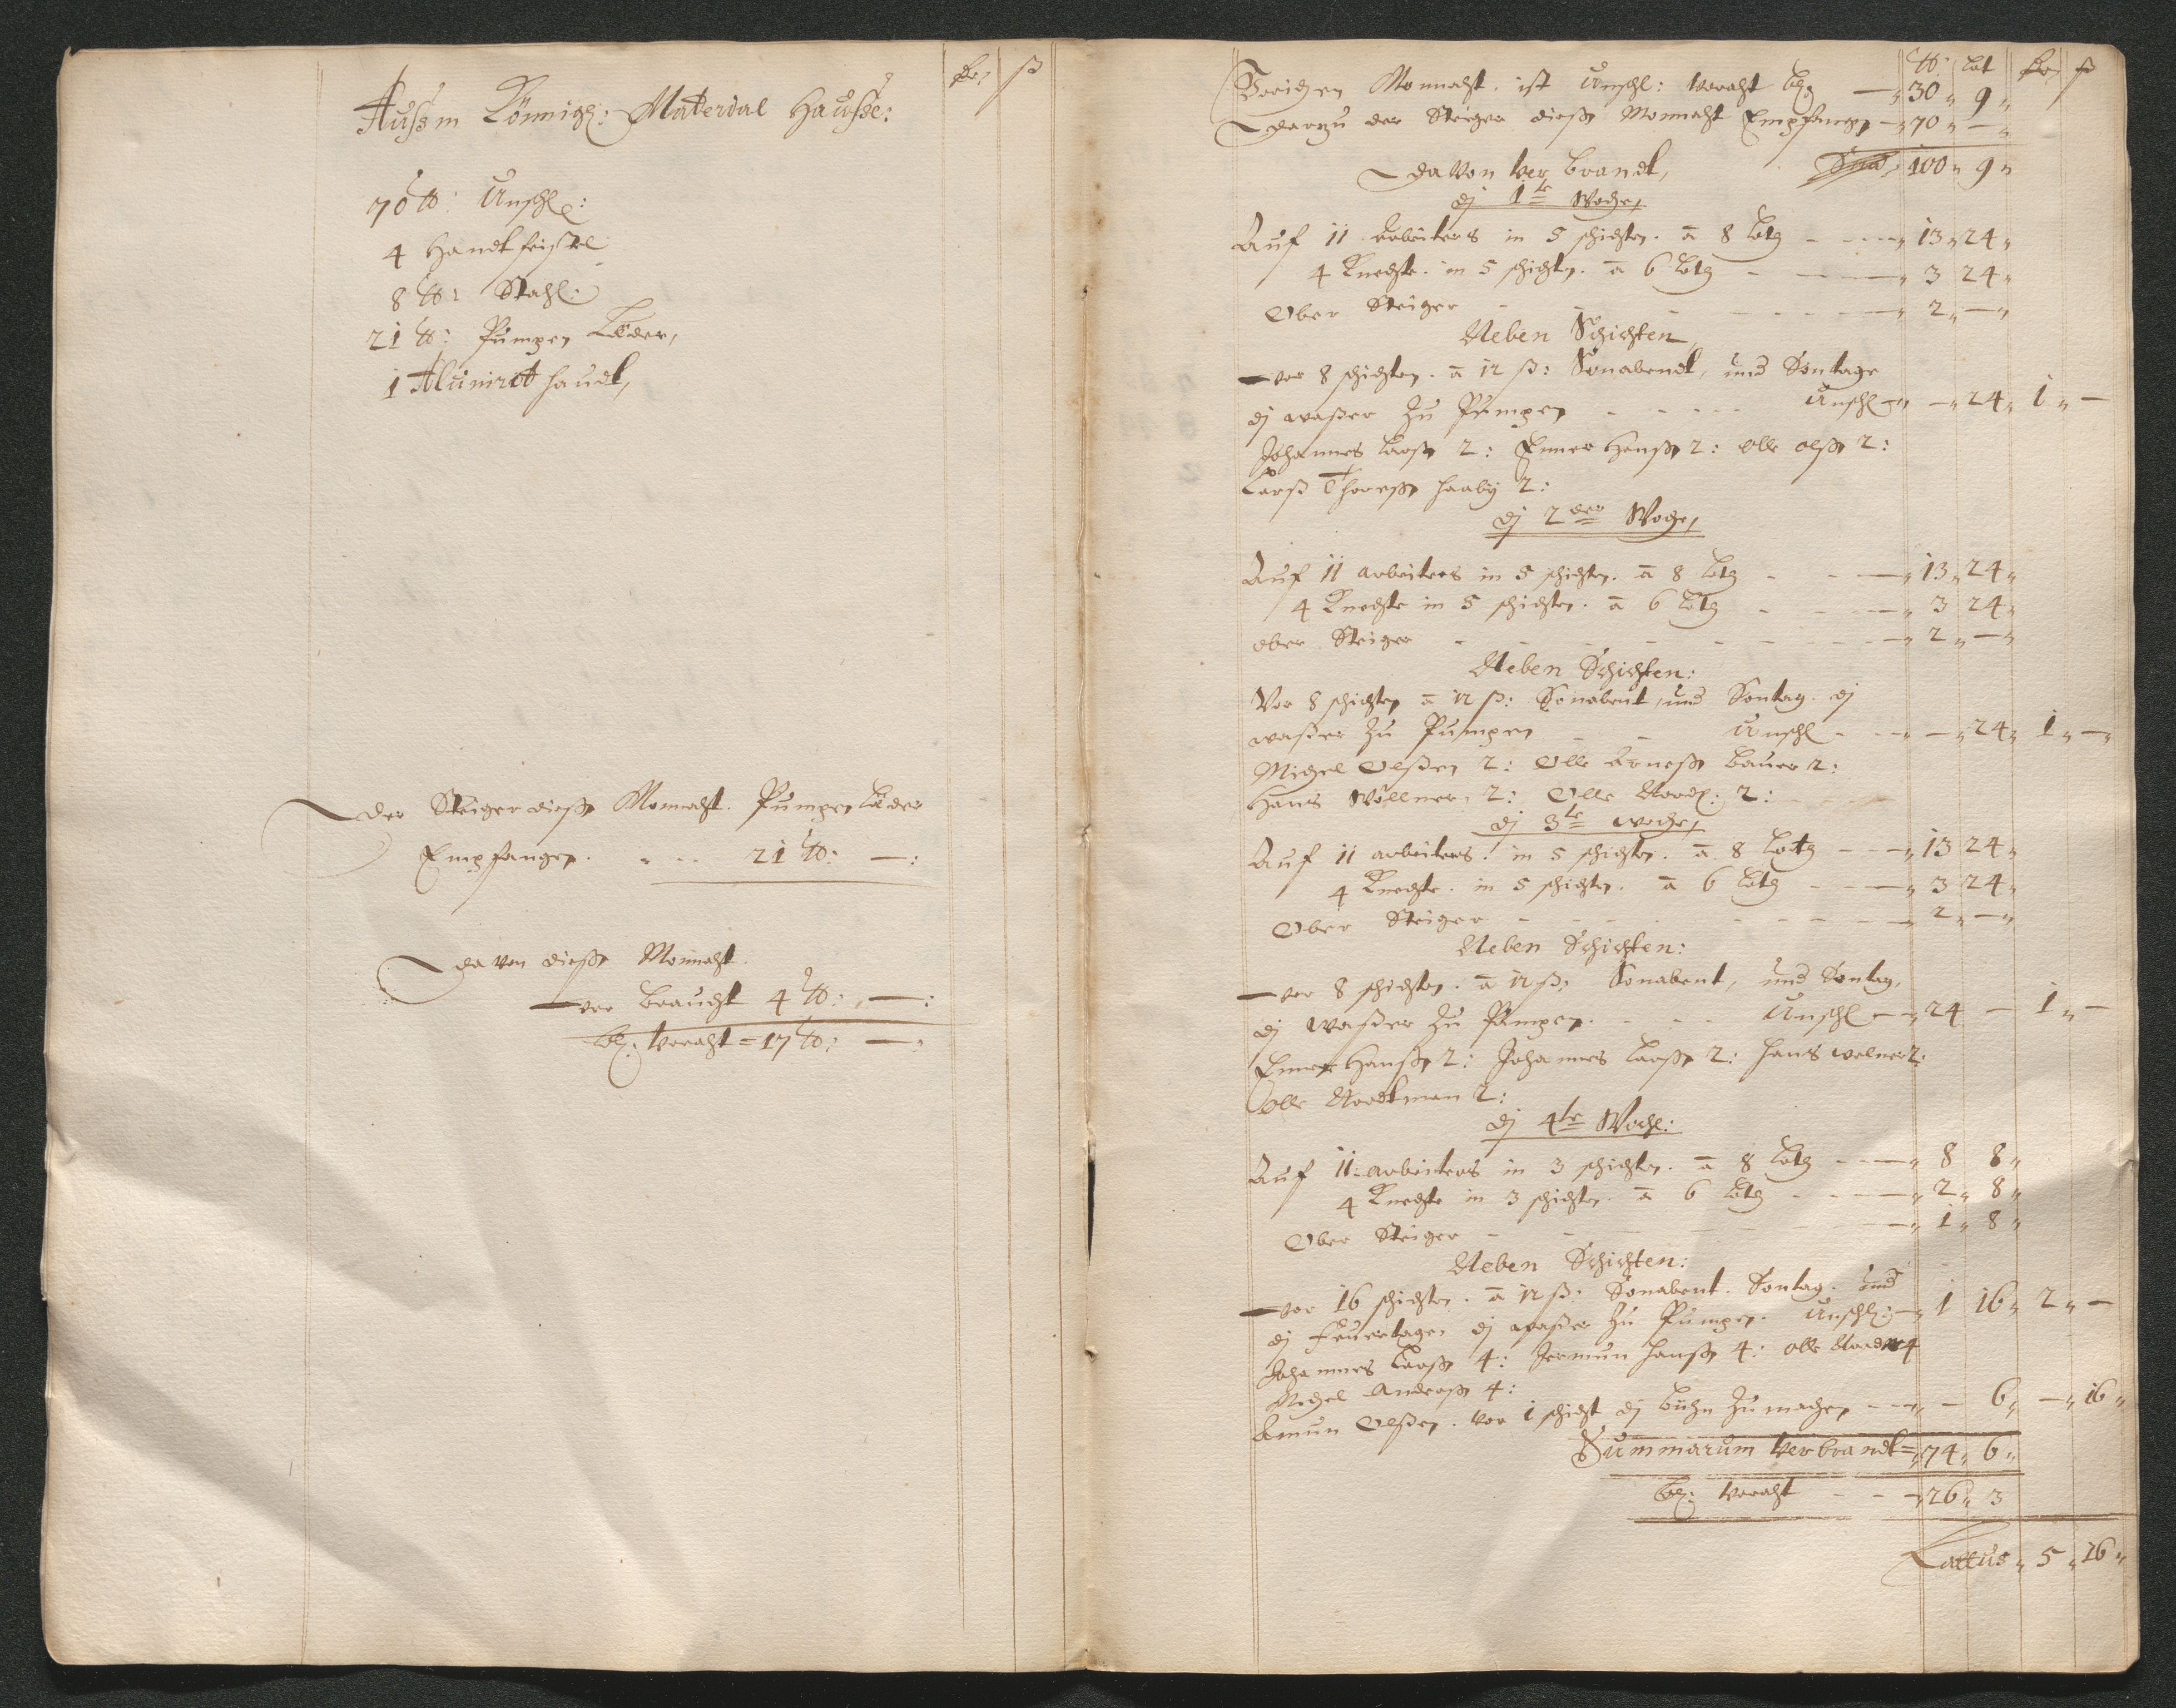 Aussm Königl: Material Hausse:
70 ℔: Unschl:
4 Handt feistel
8 ℔: Stahl:
21 ℔: Pumpen Läder,
1 Alunirt haudt,
der Steiger diesse Monnaht. Pumpen Läder
Empfangen. - - - 21 ℔: —:
da von diesse Monnaht.
ver Braucht 4 ℔: —:
bl: Voraht = 17 ℔: —:
℔: Lot
Vorichen Monnaht. ist Unschl: Voraht bl: — 30 „ 9 „
darzu der Steiger diesse Monnaht Empfangen — 70 „ — „
100 „ 9 „
davon Ver brandt,
dj 1te Woche,
Auf 11 Arbeiters in 5 schichten. a 8 Lotg - - - 13 „ 24 „
4 Knechte. in 5 schichten. a 6 Lotg - - - 3 24 „
Ober Steiger - - - 2 „ — „
Neben Schichten,
vor 8 schichten. a 12 ß: Sonabendt, und Sontage
dj wasser zu Pumpen - - - - Unschl — „ — „ 24 „ 1 „ —
Johannes Larss 2: Enner Hanss 2: Olle olss 2:
Larss Thoress haaby 2:
dj 2der Woche,
Auf 11 arbeiters in 5 schichten. a 8 Lotg - - - 13 „ 24 „
4 Knechte in 5 schichten. a 6 Lotg - - - 3 24 „
ober Steiger - - - 2 „ — „
Neben Schichten:
Vor 8 schichten a 12 ß: Sonabent, und Sontag. dj
wasser zu Pumpen - - Unschl - - - „ — „ 24 „ 1 „ — „
Michel Olssen 2: Olle Arness Bauer 2:
Hans Wöllner, 2: Olle Nordl: 2:
dj 3te woche,
Auf 11 arbeiters. in 5 schichten. a 8 Lotg - - - 13 24 „
4 Knechte. in 5 schichten. a 6 Lotg - - - 3 24 „
Ober Steiger - - - 2 „ — „
Neben Schichten:
vor 8 schichten. a 12 ß: Sonabent, und Sontag,
dj wasser zu Pumpen. - - - Unschl — „ 24 — 1 „ —
Enner Hanss 2: Johannes Larss 2: Hans wolner 2:
Olle Nordtman 2:
dj 4te Woche:
Auf 11 arbeiters in 3 schichten. a 8 Lotg - - - 8 8 „
4 Knechte in 3 schichten. a 6 Lotg - - - 2 „ 8 „
Ober Steiger - - - 1 „ 8 „
Neben Schichten:
vor 16 schichten. a 12 ß: Sonabent. Sontag. und
dj feuertage, dj wasser zu Pumpen. Unschl: — „ 1 16 „ 2 „ —
Johannes Larss 4: Hanss 4: olle 4
Michel Anderss 4:
Amun Olssen. vor 1 schicht dj Bühn zu machen - - - „ — 6 „ — „ 16 „
Summarum Verbrandt = „ 74 „ 6 „
bl: Voraht - - - „ 26 „ 3
Lattus „ 5 „ 16 „